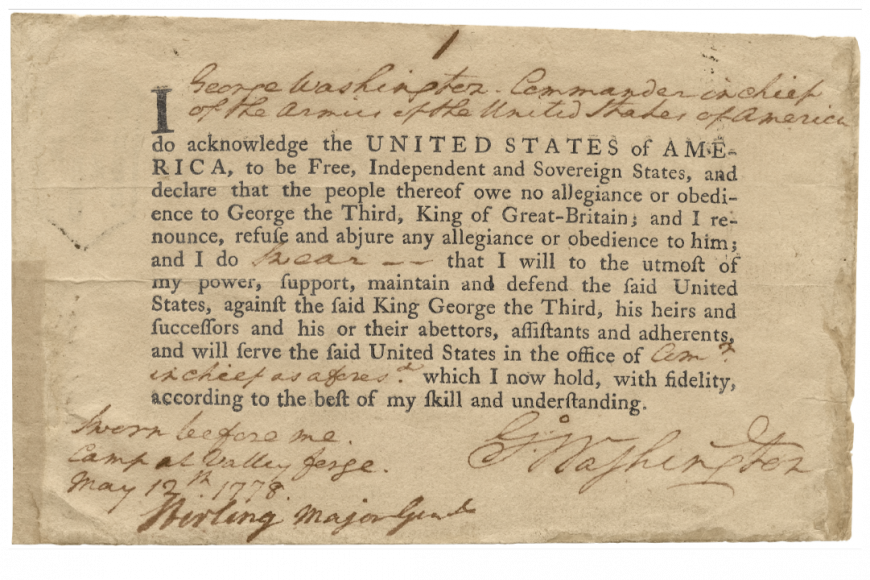 1
George Washington. Commander in chief
of the Armies of the United States of America
I
do acknowledge the UNITED STATES of AME-
RICA, to be Free, Independent and Sovereign States, and
declare that the people thereof owe no allegiance or obedi-
ence to George the Third, King of Great-Britain; and I re-
nounce, refuſe and abjure any allegiance or obedience to him;
and I do Swear —— that I will to the utmoſt of
my power, ſupport, maintain and defend the ſaid United
States, againſt the ſaid King George the Third, his heirs and
ſucceſſors and his or their abettors, aſſiſtants and adherents,
and will ſerve the ſaid United States in the office of Comr.
in chief as afores.d which I now hold, with fidelity,
according to the beſt of my ſkill and underſtanding.
Sworn before me.
Camp at Valley forge.
May 12th. 1778.
Stirling Major Genl
Go. Washington